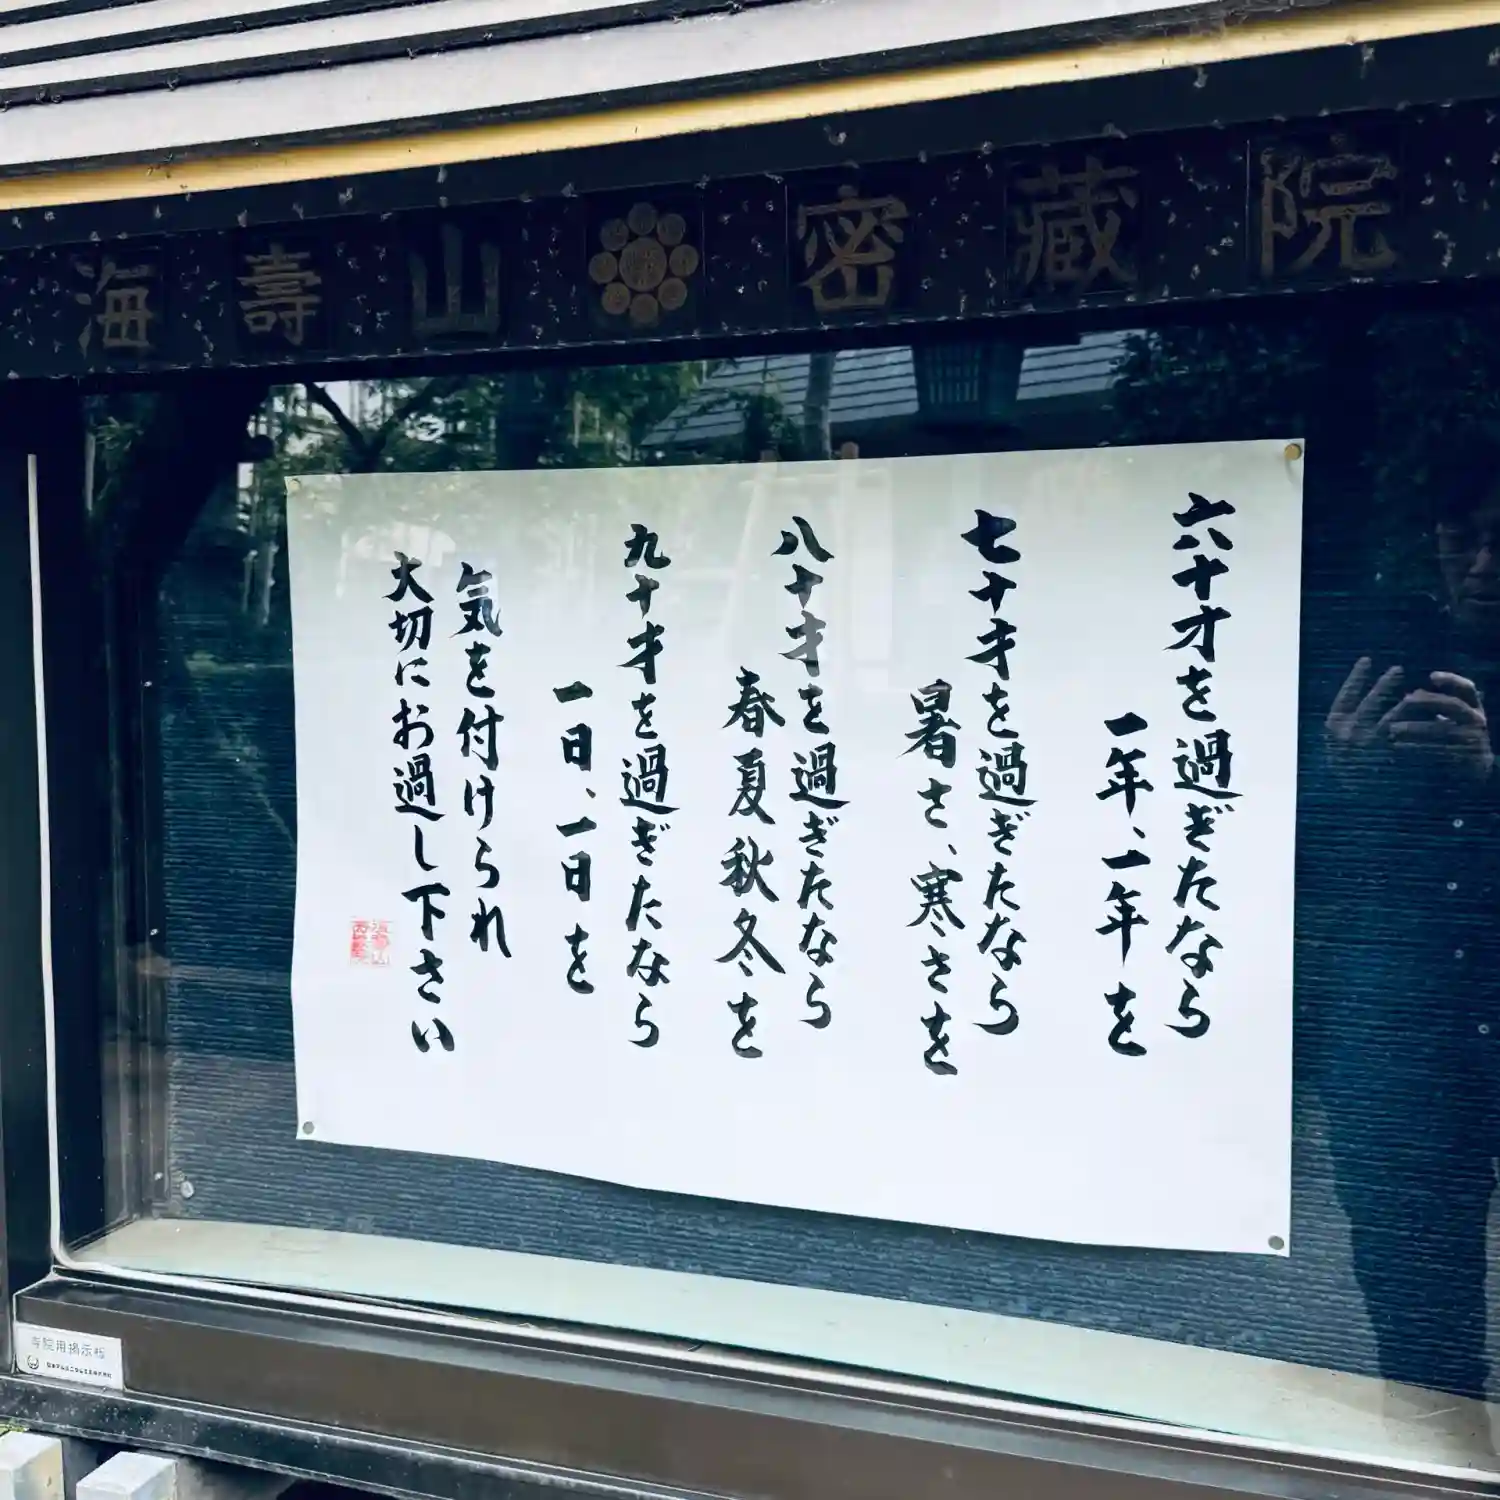 海壽山 密蔵院
六十才を過ぎたなら
一年、一年を
七十才を過ぎたなら
暑さ、寒さを
八十才を過ぎたなら
春夏秋冬を
九十才を過ぎたなら
一日、一日を
気を付けられ
大切にお過し下さい
寺院用掲示板